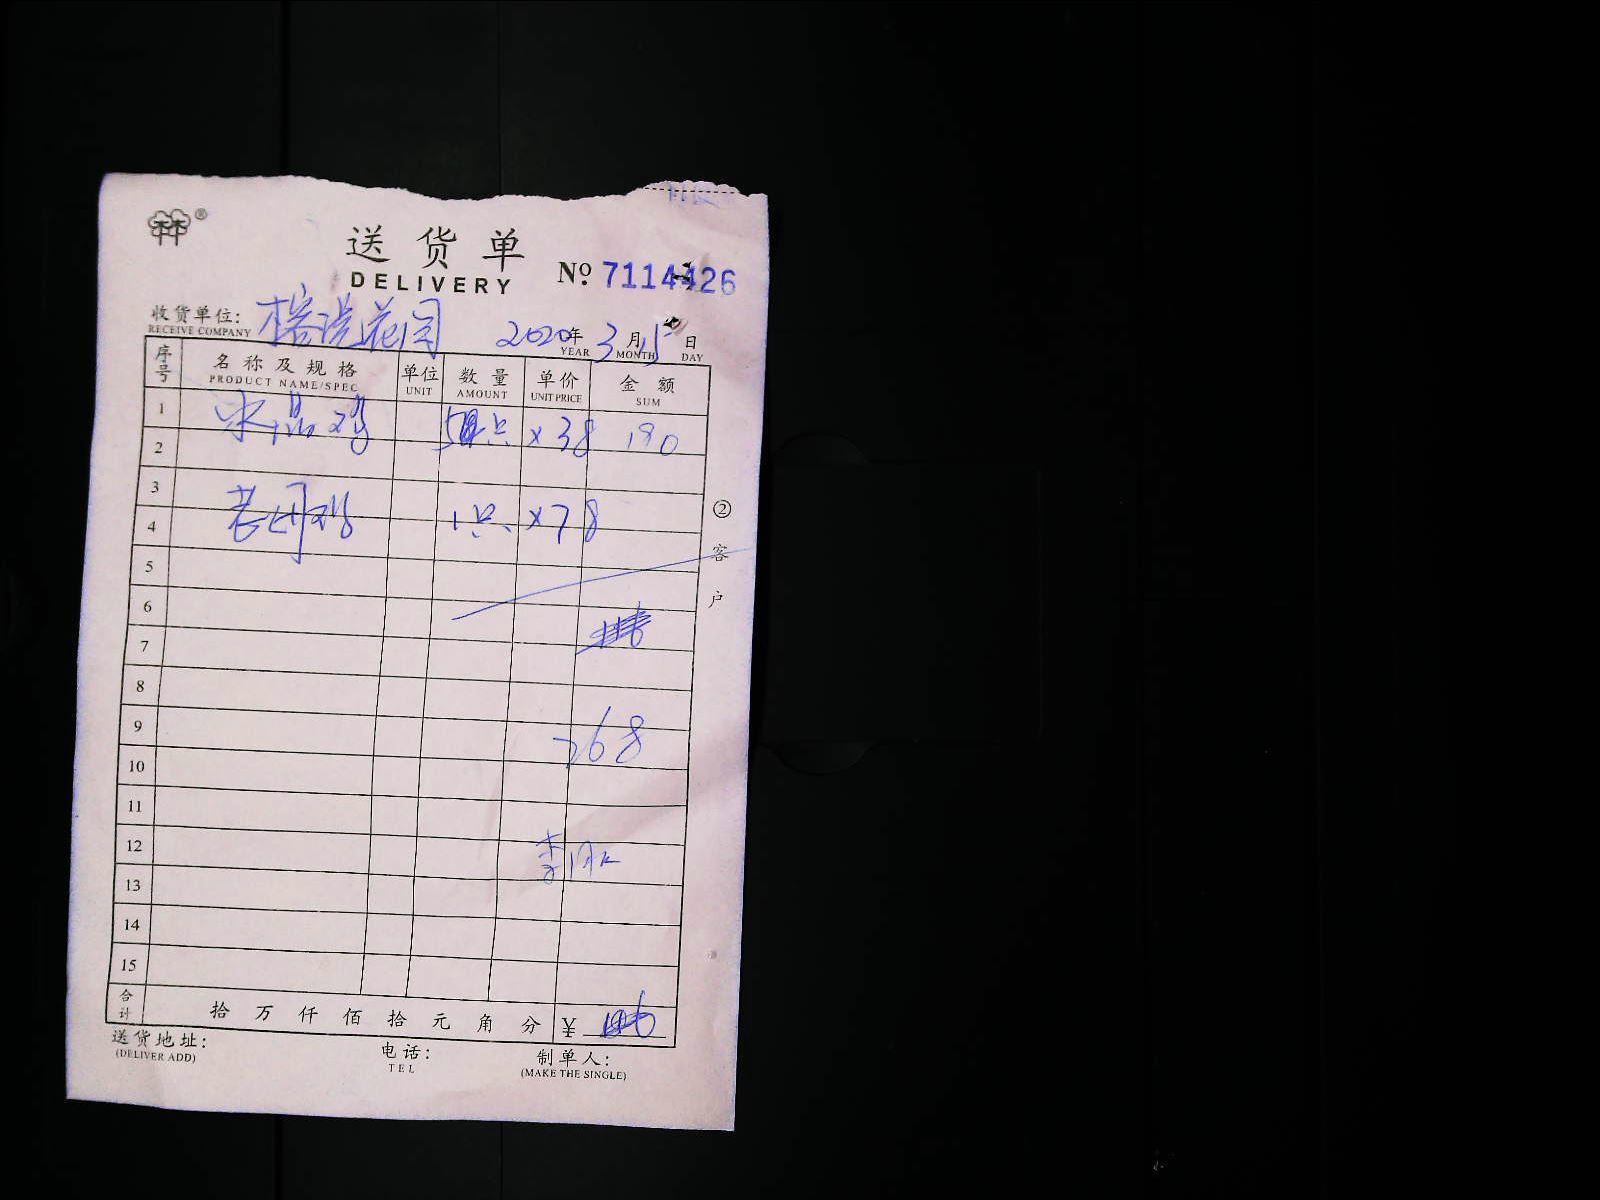 林®
送货单
DELIVERY
№ 7114426
收货单位: 花园
RECEIVE COMPANY
2020年 3月15日
YEAR MONTH DAY
序号 名称及规格 单位 数量 单价 金额
PRODUCT NAME/SPEC UNIT AMOUNT UNIT PRICE SUM
1 水晶鸡 5只 ×38 190
2
3
4 老母鸡 1只 ×78
5
6
7
8
9 268
10
11
12 李
13
14
15
合计 拾万仟佰拾元角分 ¥
② 客户
送货地址: 电话: 制单人:
(DELIVER ADD) TEL (MAKE THE SINGLE)